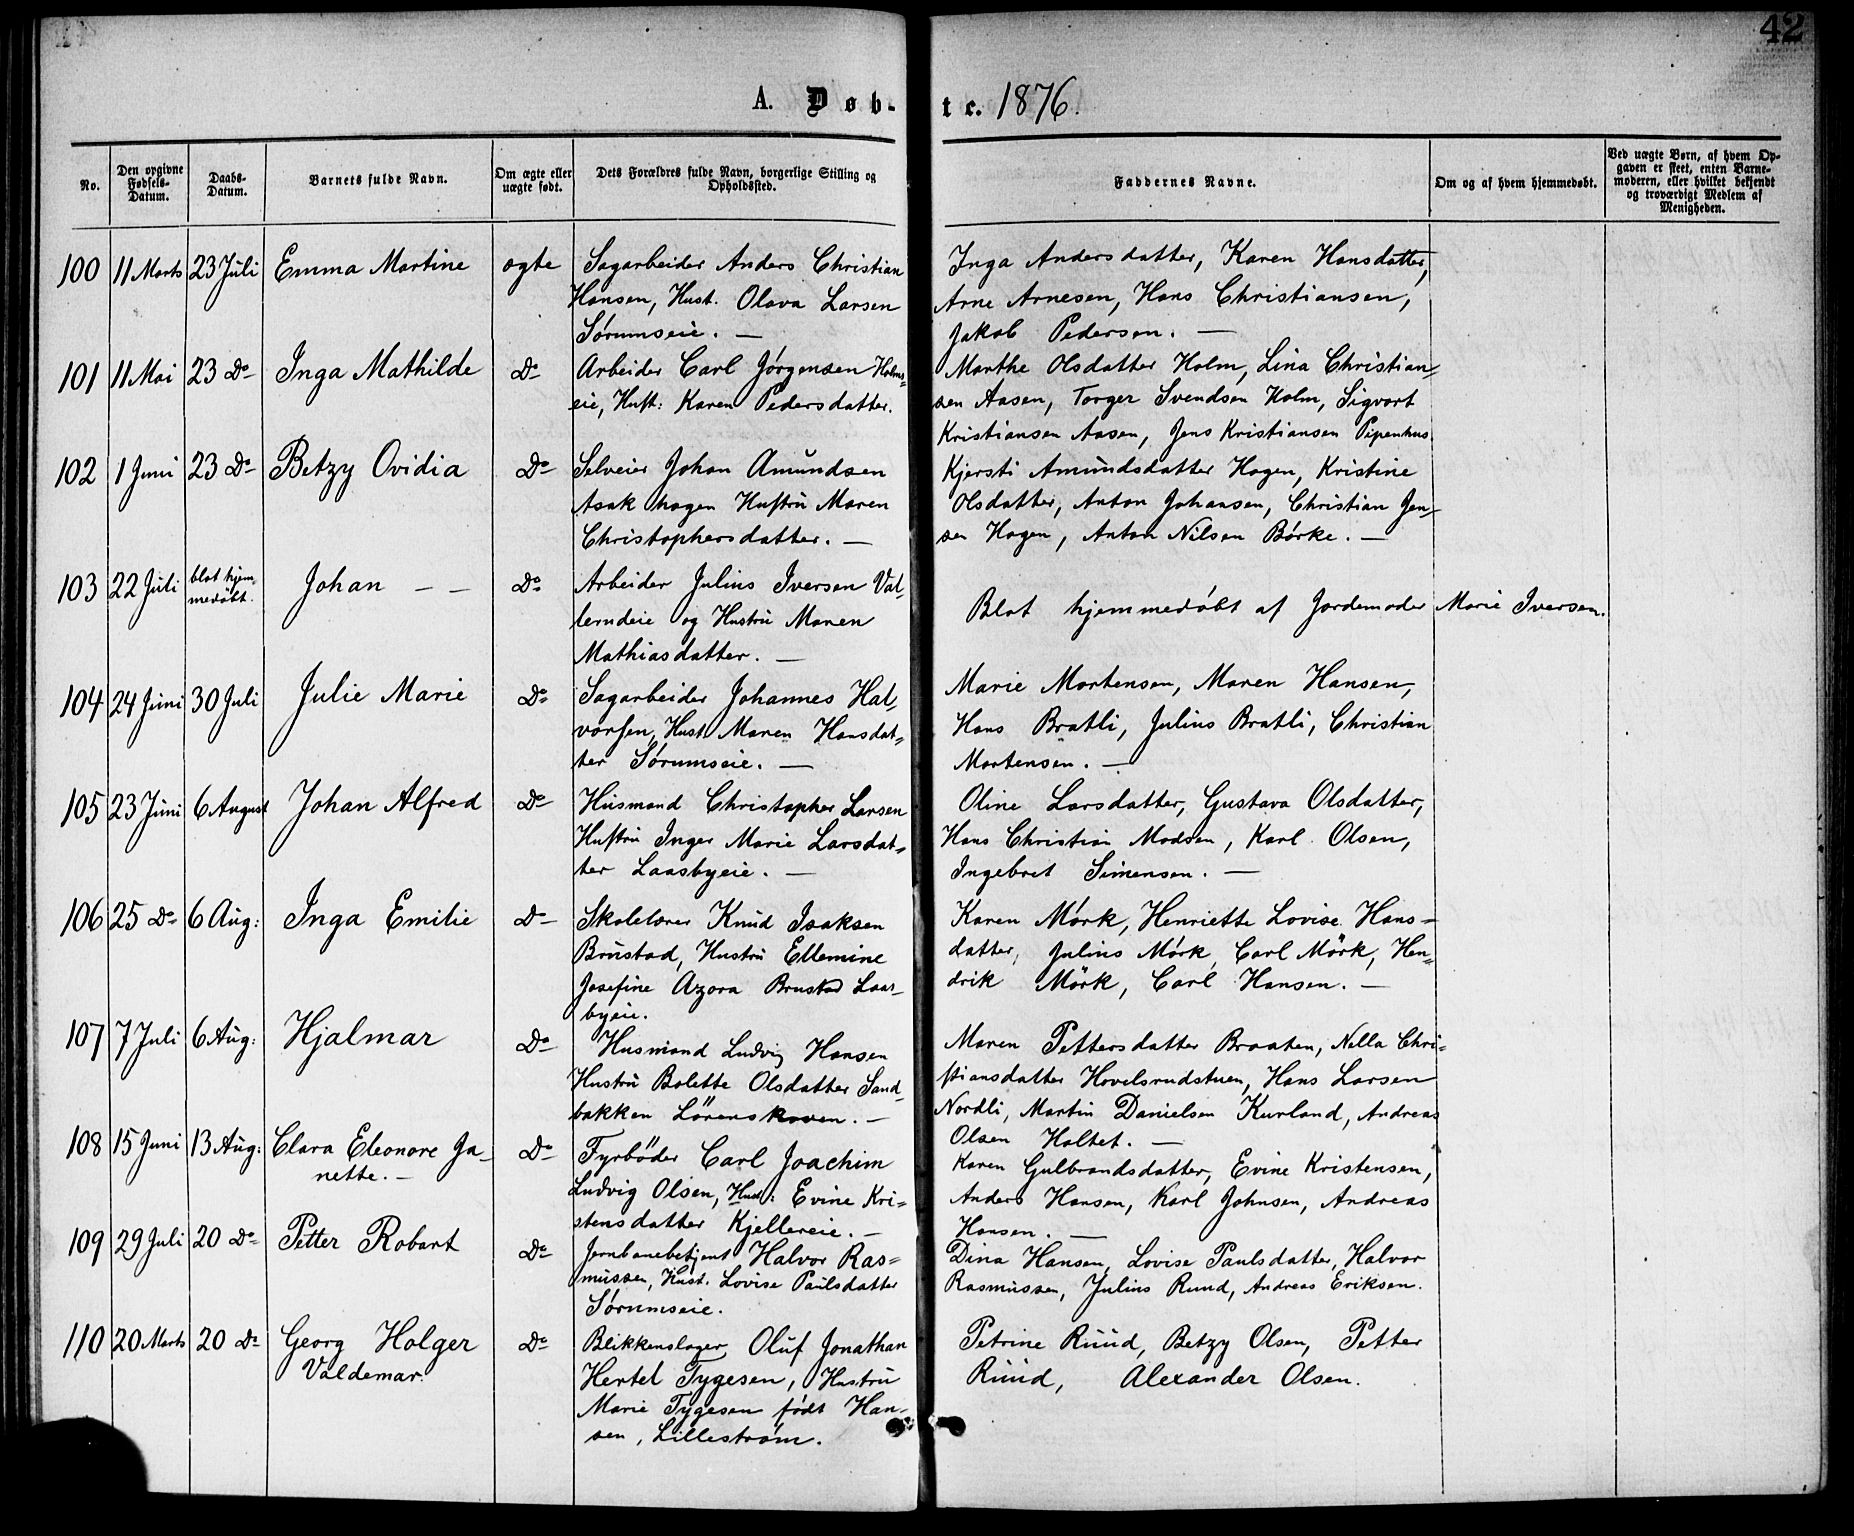 42
A. Døb-
te. 1876.
No.
Den opgivne
Fødsels-
Datum.
Daabs-
Datum.
Barnets fulde Navn.
Om ægte eller
uægte født.
Dets Forældres fulde Navn, borgerlige Stilling og
Opholdssted.
Faddernes Navne.
Om og af hvem hjemmedøbt.
Ved uægte Børn, af hvem Op-
gaven er skeet, enten Barne-
moderen, eller hvilket bekjendt
og troværdigt Medlem af
Menigheden.
100 11 Marts 23 Juli Emma Martine ægte Sagarbeider Anders Christian
Hansen, Hust. Olava Larsen
Sørumseie. —
Inga Andersdatter, Karen Hansdatter,
Arne Arnesen, Hans Christiansen,
Jakob Pedersen. —
101 11 Mai 23 Do Inga Mathilde Do Arbeider Carl Jörgensen Holms-
eie, Hust: Karen Pedersdatter.
Marthe Olsdatter Holm, Lina Christian-
sen Aasen, Torger Svendsen Holm, Sigvart
Kristiansen Aasen, Jens Kristiansen Pipenhus
102 1 Juni 23 Do Betzy Ovidia Do Selveier Johan Amundsen
Asak hagen Hustru Maren
Christophersdatter. —
Kjersti Amundsdatter Hagen, Kristine
Olsdatter, Anton Johansen, Christian Jen-
sen Hagen, Anton Nilsen Börke. —
103 22 Juli blot hjem-
medøbt. Johan — — Do Arbeider Julius Iversen Val-
lerudeie og Hustru Maren
Mathiasdatter. —
Blot hjemmedøbt af Jordemoder Marie Iversen.
104 24 Juni 30 Juli Julie Marie Do Sagarbeider Johannes Hal-
vorsen, Hust. Maren Hansdat-
ter Sørumseie. —
Marie Mortensen, Maren Hansen,
Hans Bratli, Julius Bratli, Christian
Mortensen. —
105 23 Juni 6 August Johan Alfred Do Husmand Christopher Larsen
Hustru Inger Marie Larsdat-
ter Laasbyeie. —
Oline Larsdatter, Gustava Olsdatter,
Hans Christian Madsen, Karl Olsen,
Ingebret Simensen. —
106 25 Do 6 Aug: Inga Emilie Do Skolelærer Knud Isaksen
Brustad, Hustru Ellemine
Josefine Azora Brustad Laas-
byeie.
Karen Mörk, Henriette Lovise Hans-
datter, Julius Mörk, Carl Mörk, Hen-
drik Mörk, Carl Hansen. —
107 7 Juli 6 Aug: Hjalmar Do Husmand Ludvig Hansen
Hustru Bolette Olsdatter Sand-
bakken Lörenskoven. —
Maren Pettersdatter Braaten, Nella Chri-
stiansdatter Hovelsrudstuen, Hans Larsen
Nordli, Martin Danielsen Kurland, Andreas
Olsen Holtet. —
108 15 Juni 13 Aug: Clara Eleonore Ja-
nette. — Do Fyrböder Carl Joachim
Ludvig Olsen, Hust: Evine Kri-
stensdatter Kjellereie. —
Karen Gulbrandsdatter, Evine Kristensen,
Anders Hansen, Karl Johnsen, Andreas
Hansen. —
109 29 Juli 20 Do Petter Robart Do Jernbanebetjent Halvor Ras-
mussen, Hust. Lovise Paulsdatter
Sørumseie.
Dina Hansen, Lovise Paulsdatter, Halvor
Rasmussen, Julius Ruud, Andreas Eriksen.
110 20 Marts 20 Do Georg Holger
Valdemar. Do Blikkenslager Oluf Jonathan
Hertel Tygesen, Hustru
Marie Tygesen født Han-
sen, Lillestrøm.
Petrine Ruud, Betzy Olsen, Petter
Ruud, Alexander Olsen.